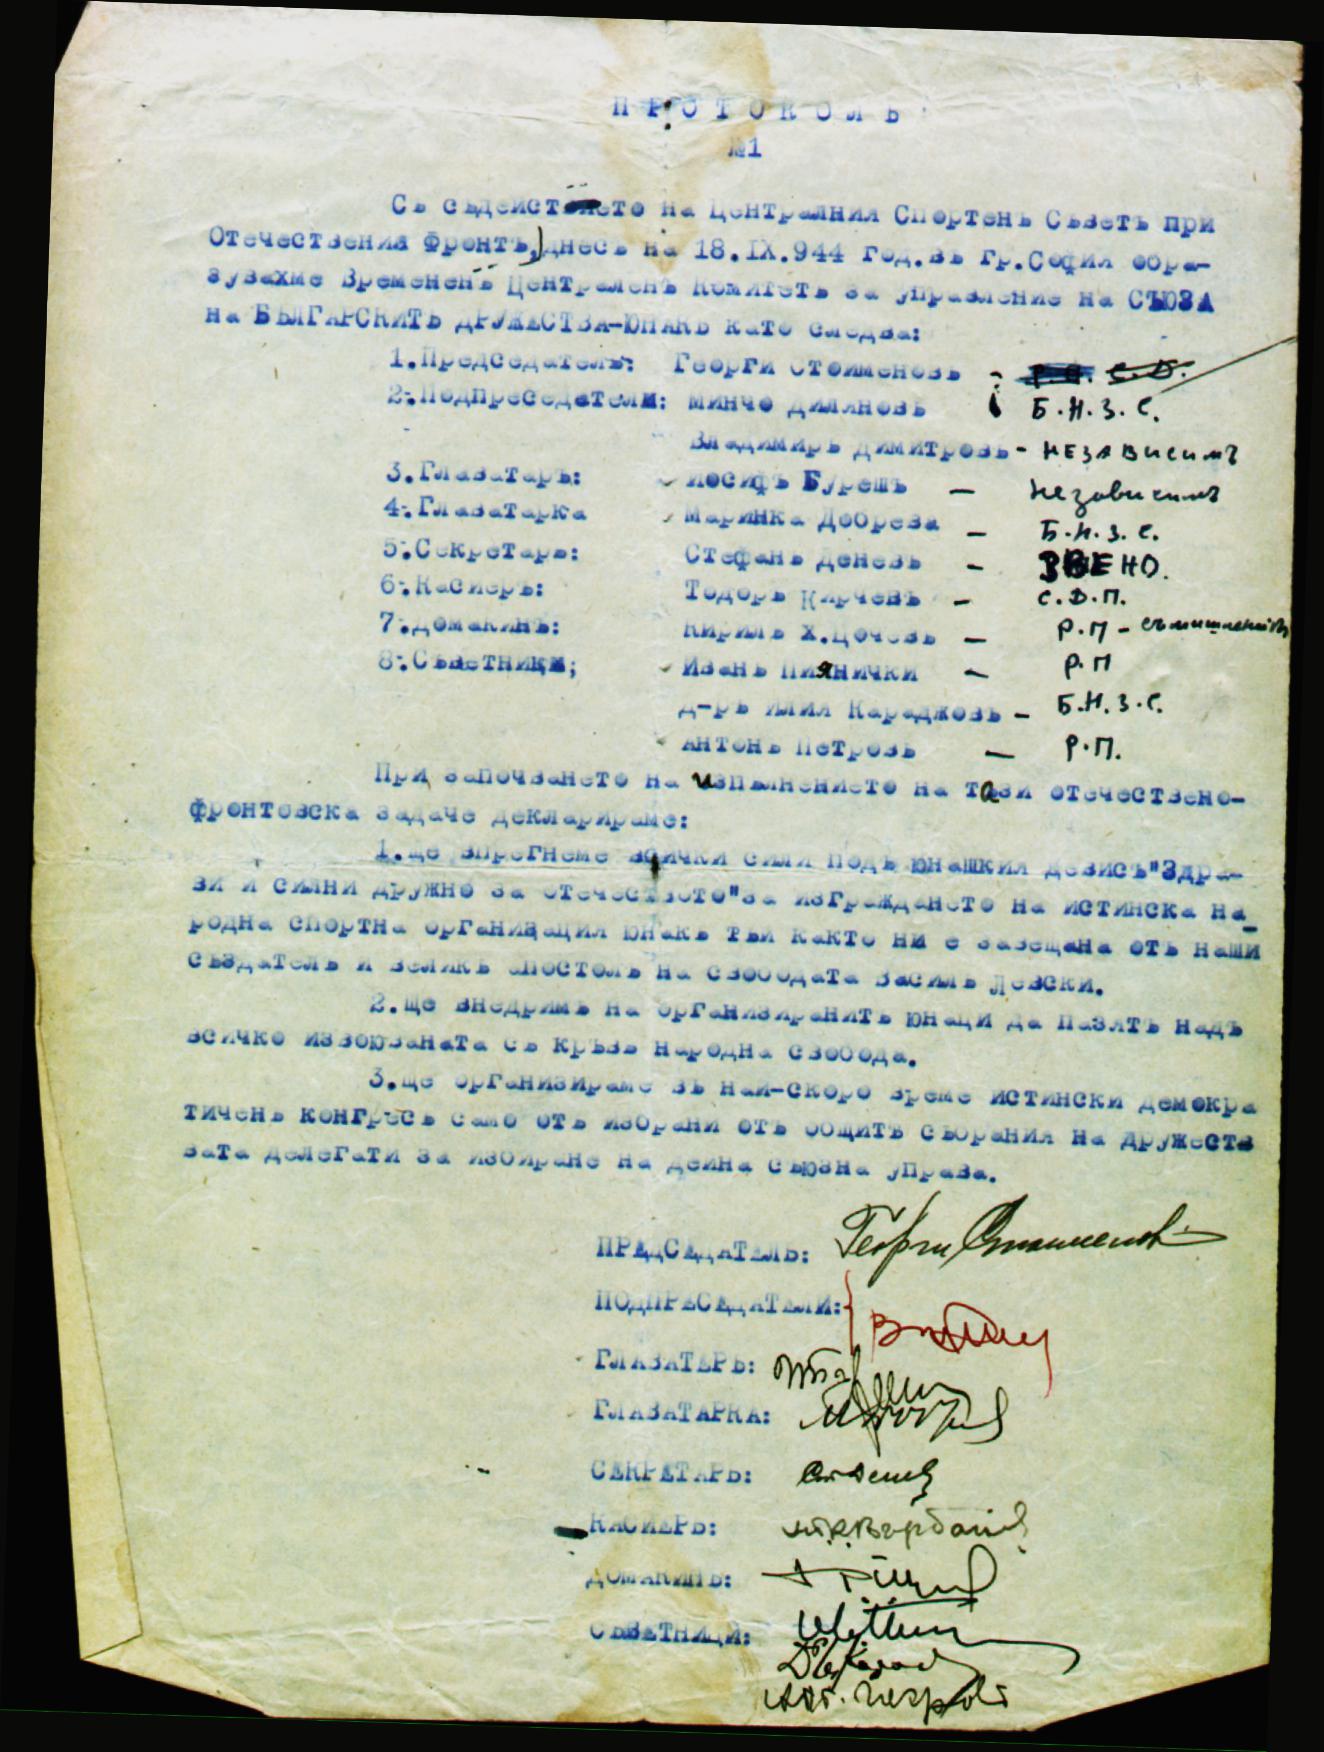 ПРОТОКОЛЪ
№1
Съ съдействието на Централния Спортенъ Съветъ при
Отечествения Фронтъ, днесъ на 18.IX.944 год.въ гр.София обра-
зувахме Времененъ Централенъ Комитетъ за управление на СЪЮЗА
на БЪЛГАРСКИТЪ ДРУЖЕСТВА-ЮНАКЪ като следва:
1.Председатель: Георги Стоименовъ -
2.Подпреседатели: Минчо Диляновъ Б.Н.З.С.
Владимиръ Димитровъ- НЕЗАВИСИМЪ
3.Главатаръ: Иосифъ Бурешъ — Независимъ
4.Главатарка Маринка Добрева — Б.Н.З.С.
5.Секретарь: Стефанъ Деневъ - ЗВЕНО.
6.Касиеръ: Тодоръ Кирчевъ - С.Д.П.
7.Домакинъ: Кирилъ Х.Цочевъ — Р.П - съмишленикъ
8.Съветници; Иванъ Пиянички — Р.П
д-ръ Илия Караджовъ - Б.Н.З.С.
Антонъ Петровъ — Р.П.
При започването на изпълнението на тази отечествено-
фронтовска задаче декларираме:
1.ще впрегнеме всички сили подъ юнашкия девисъ"Здра-
ви и силни дружно за отечеството"за изграждането на истинска на
родна спортна организация юнакъ тъй както ни е завещана отъ наши
създатель и великъ апостолъ на свободата Василъ Левски.
2.ще внедримъ на организиранитъ юнаци да пазятъ надъ
всичко извоюваната съ кръвь народна свобода.
3.ще организираме въ най-скоро време истински демокра
тиченъ конгресъ само отъ избрани отъ общитъ събрания на дружеств
вата делегати за избиране на дейна съюзна управа.
ПРЕДСЕДАТЕЛЬ: Георги Стоименовъ
ПОДПРЕСЕДАТЕЛИ:
ГЛАВАТЕРЪ:
ГЛАВАТАРКА:
СЕКРЕТАРЬ: Ст.Деневъ
КАСИЕРЪ:
ДОМАКИНЪ:
СЪВЕТНИЦИ:
Ант. Петровъ